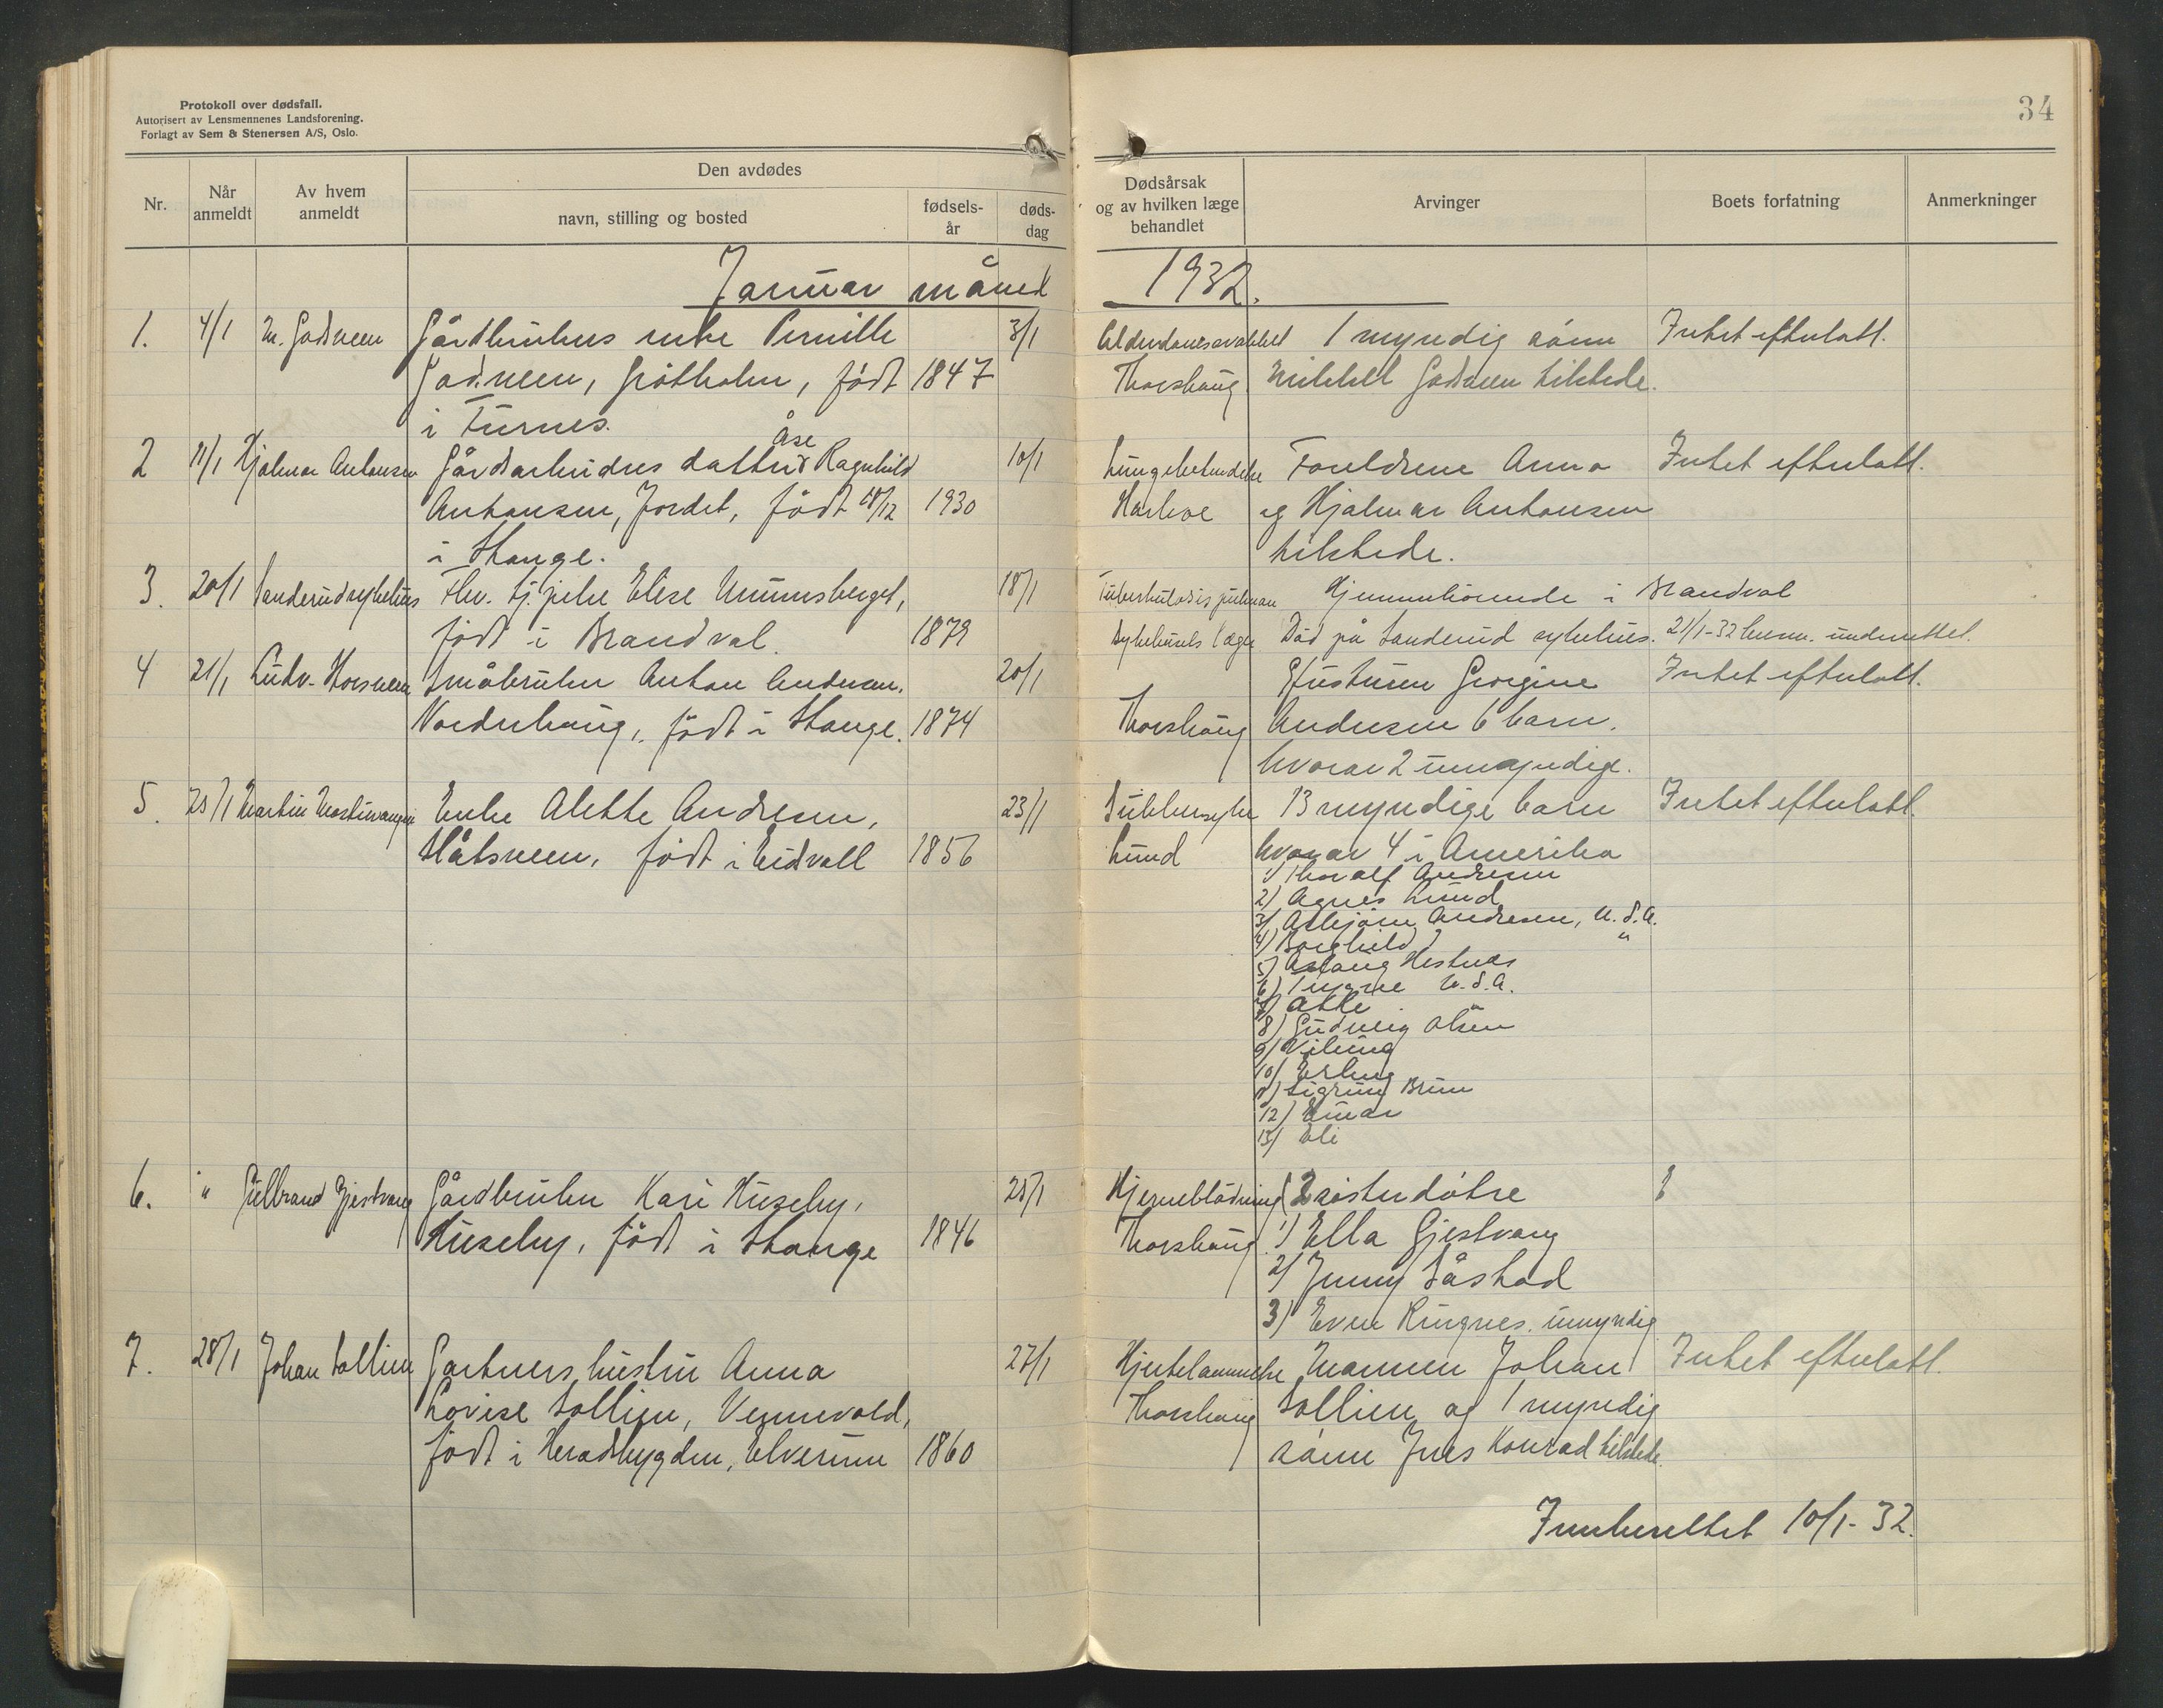 Protokoll over dødsfall.
Autorisert av Lensmennenes Landsforening.
Forlagt av Sem & Stenersen A/S, Oslo.
34
Nr.
Når anmeldt
Av hvem anmeldt
Den avdødes
navn, stilling og bosted
fødsels-år
døds-dag
Dødsårsak og av hvilken læge behandlet
Arvinger
Boets forfatning
Anmerkninger
Januar måned 1932.
1. 4/1 M. Godsveen Gårdbrukers enke Pernille 3/1 Alderdomssvakhet 1 myndig sønn Intet efterlatt.
Godsveen, født 1847 Thorshaug Mikkel Godsveen tilstede.
i Furnes.
Åse
2 11/1 Hjalmar Antonsen Gårdsarbeiders datter Ragnhild 10/1 Lungebetendelse Foreldrene Anna Intet efterlatt.
Antonsen, Jordet, født 18/12 1930 Harboe og Hjalmar Antonsen
i Stange. tilstede.
3. 20/1 Sanderud sykehus Fhv. tj. pike Elise 18/1 Tuberkulosis pulmon Hjemmehørende i Brandval
født i Brandval. 1879 Sykehusets læge Død på Sanderud sykehus. 21/1-32 lensm. underrettet.
4 21/1 Ludv. Horsveen Småbruker Anton Andersen, 20/1 Hustruen Georgine Intet efterlatt.
Norderhaug, født i Stange. 1874 Thorshaug Andersen 6 barn.
hvorav 2 umyndige.
5. 25/1 Martin Enke Alette Andresen, 23/1 Sukkersyke 13 myndige barn Intet efterlatt.
født i Eidvoll 1856 Lund hvorav 4 i Amerika
1) Thoralf Andresen
2) Agnes Lund
3) Asbjørn Andresen, U.S.A.
4) Borghild "
5) Aslaug Hestnes
6) Trygve U.S.A.
7) "
8) Gudveig Olsen
9) Viking
10) Erling
11) Sigrun Brun
12) Einar
13) Eli
6. " Gulbrand Gjestvang Gårdbruker Kari Huseby, 25/1 Hjerneblødning 2 søsterdøtre
Huseby, født i Stange 1846 Thorshaug 1) Ella Gjestvang
2) Jenny Såstad
3) Even Ringnes. umyndig
7. 28/1 Johan Sollien Gartners hustru Anna 27/1 Hjertelammelse Mannen Johan Intet efterlatt.
Lovise Sollien, Vennevold, Thorshaug Sollien og 1 myndig
født i Heradsbygden, Elverum 1860 sønn Jens Konrad tilstede.
Innberettet 10/1-32.